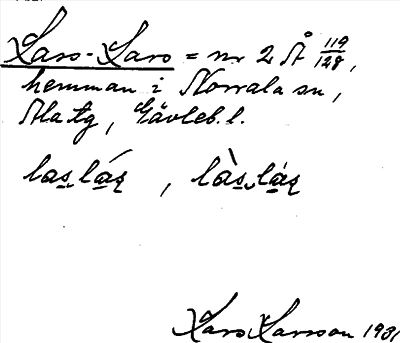 Lars-Lars = nr 2 Å 119/128,
hemman i Norrala sn,
Ala tg, Gävleb. l.
las̲lás̲ , làs̲lás̲
Lars Larsson 1931